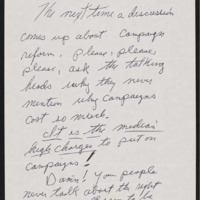 The next time a discussion
comes up about Campaign
reform, please, please,
please, ask the talking
heads why they never
mention why Campaigns
cost so much.
It is the media's
high charges to put on
campaigns!
Damn! You people
never talk about the right
to be